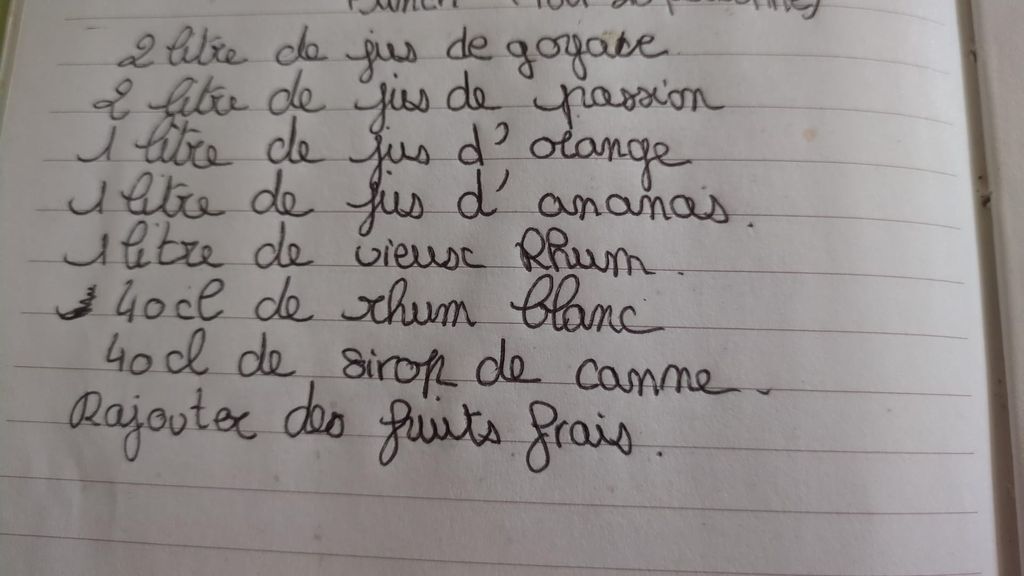 2 litre de jus de goyave
2 litre de jus de passion
1 litre de jus d'orange
1 litre de jus d'ananas.
1 litre de vieux Rhum.
40 cl de rhum blanc
40 cl de sirop de canne.
Rajouter des fruits frais.